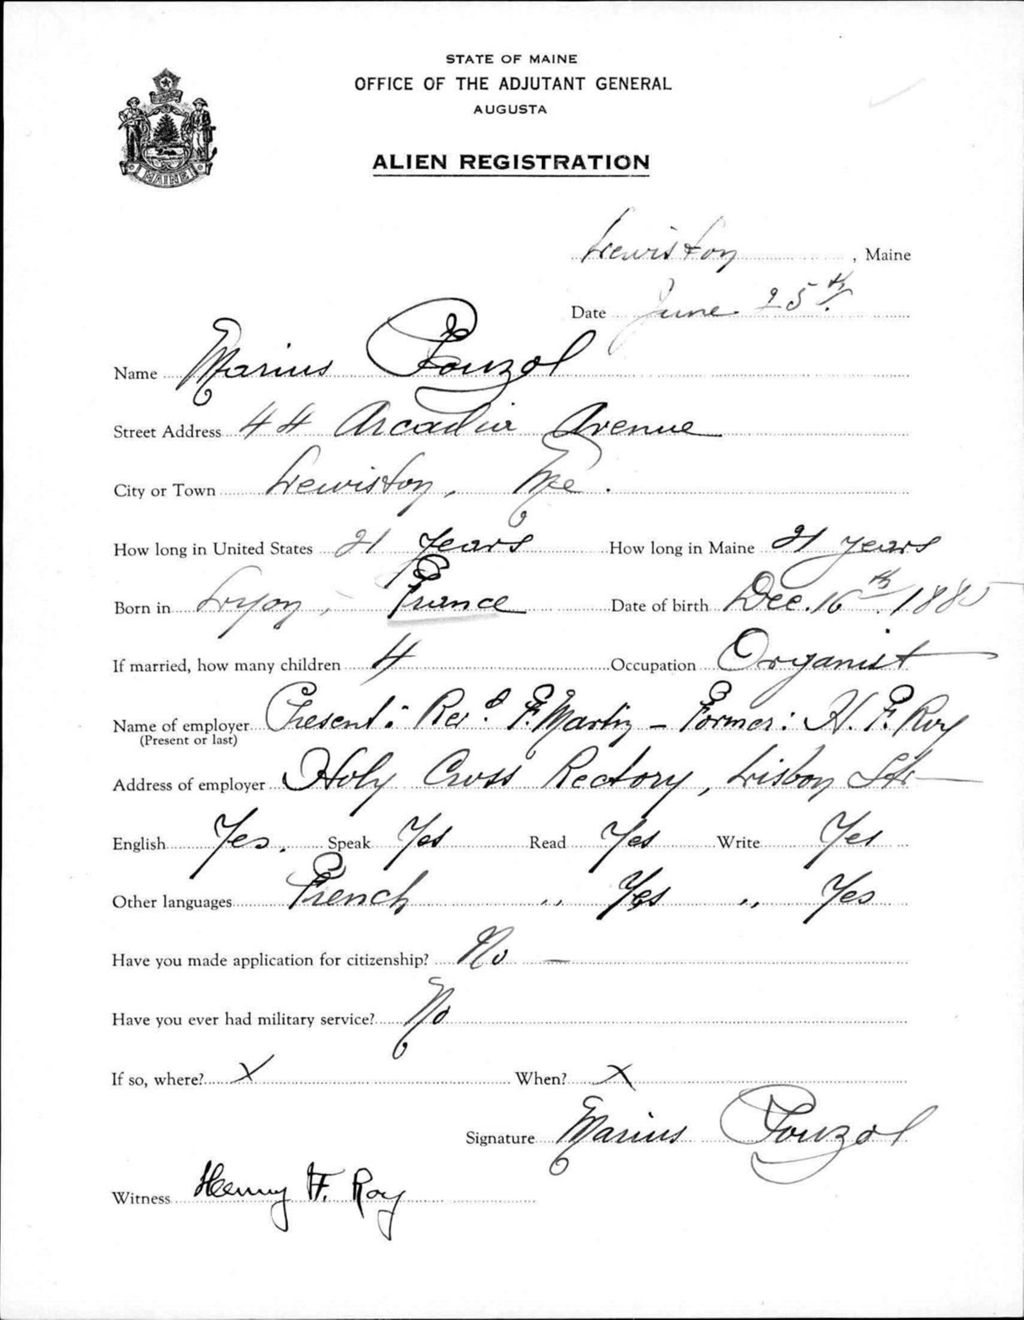 STATE OF MAINE
OFFICE OF THE ADJUTANT GENERAL
AUGUSTA
ALIEN REGISTRATION
MAINE
Lewiston, Maine
Date June 25th
Name Marius Pouzol
Street Address 44 Arcadia Avenue
City or Town Lewiston, Me.
How long in United States 21 years How long in Maine 21 years
Born in Lyon, France Date of birth Dec. 16th 1880
If married, how many children 4 Occupation Organist
Name of employer Present: Rev. F. Martin - Former: H. F. Roy
(Present or last)
Address of employer Holy Cross Rectory, Lisbon Str
English Yes. Speak Yes Read Yes Write Yes
Other languages French " Yes " Yes
Have you made application for citizenship? No -
Have you ever had military service? No
If so, where? X When? X
Signature Marius Pouzol
Witness Henry F. Roy